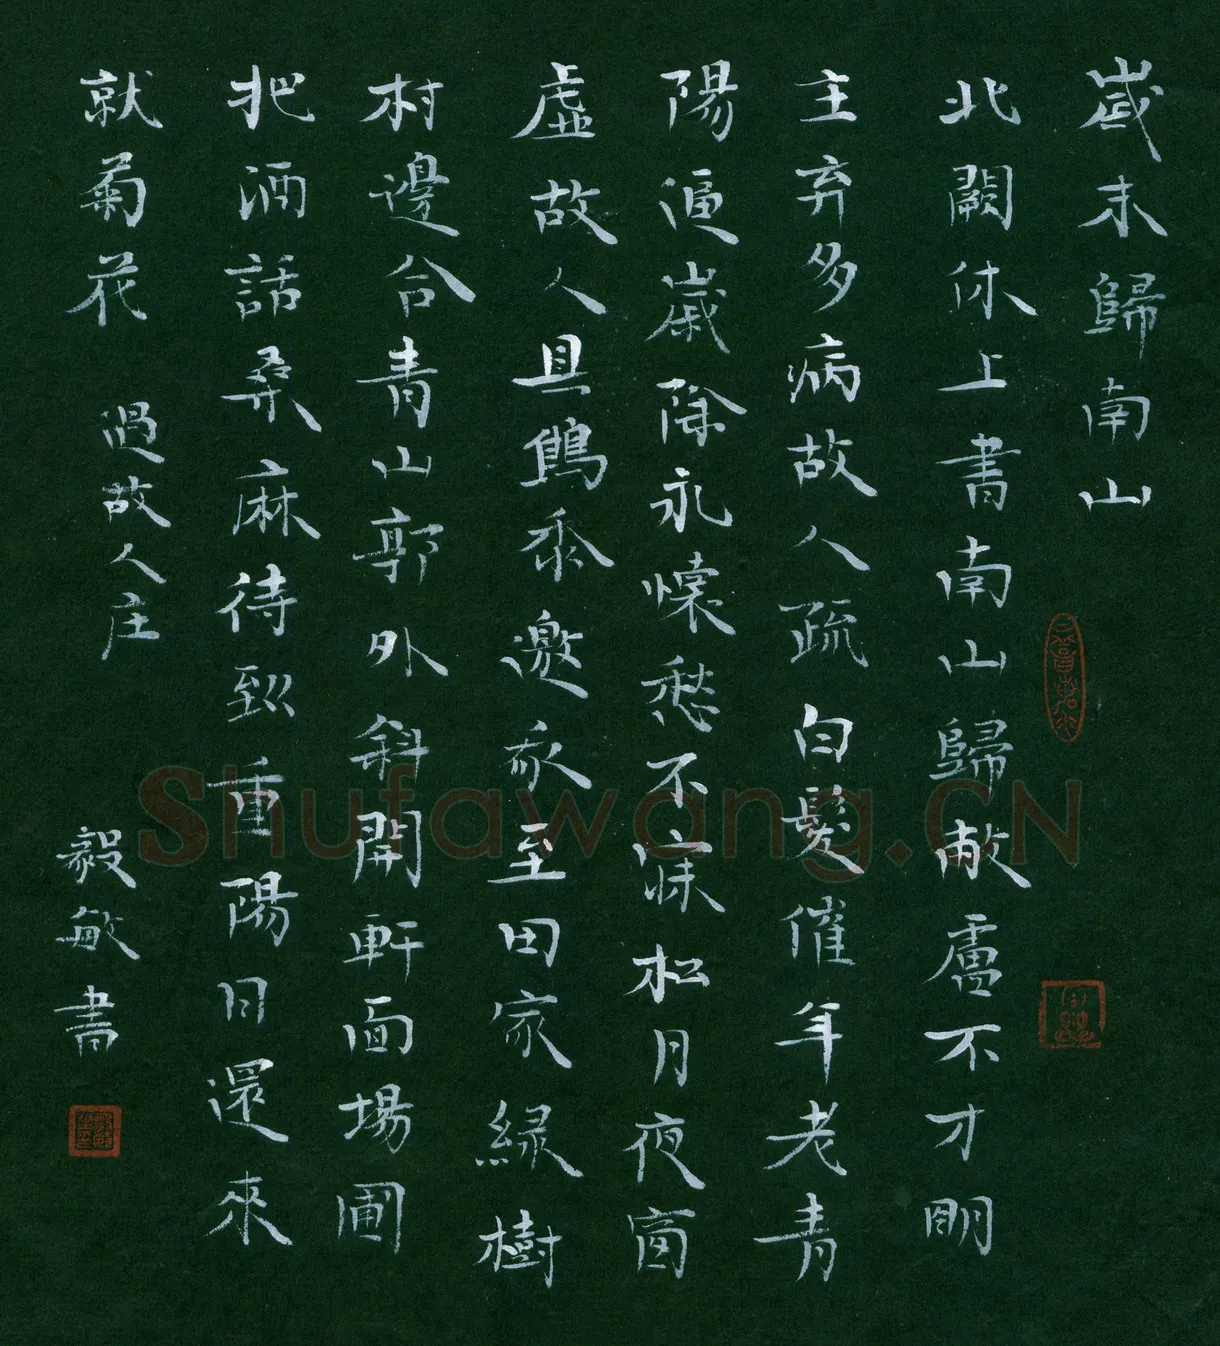 歲末歸南山
北闕休上書南山歸敝廬不才明
主弃多病故人疏白髮催年老青
陽逼歲除永懷愁不寐松月夜窗
虛故人具鷄黍邀我至田家緑樹
村邊合青山郭外斜開軒面場圃
把酒話桑麻待到重陽日還來
就菊花 過故人庄
毅敏書
Shufawang.CN